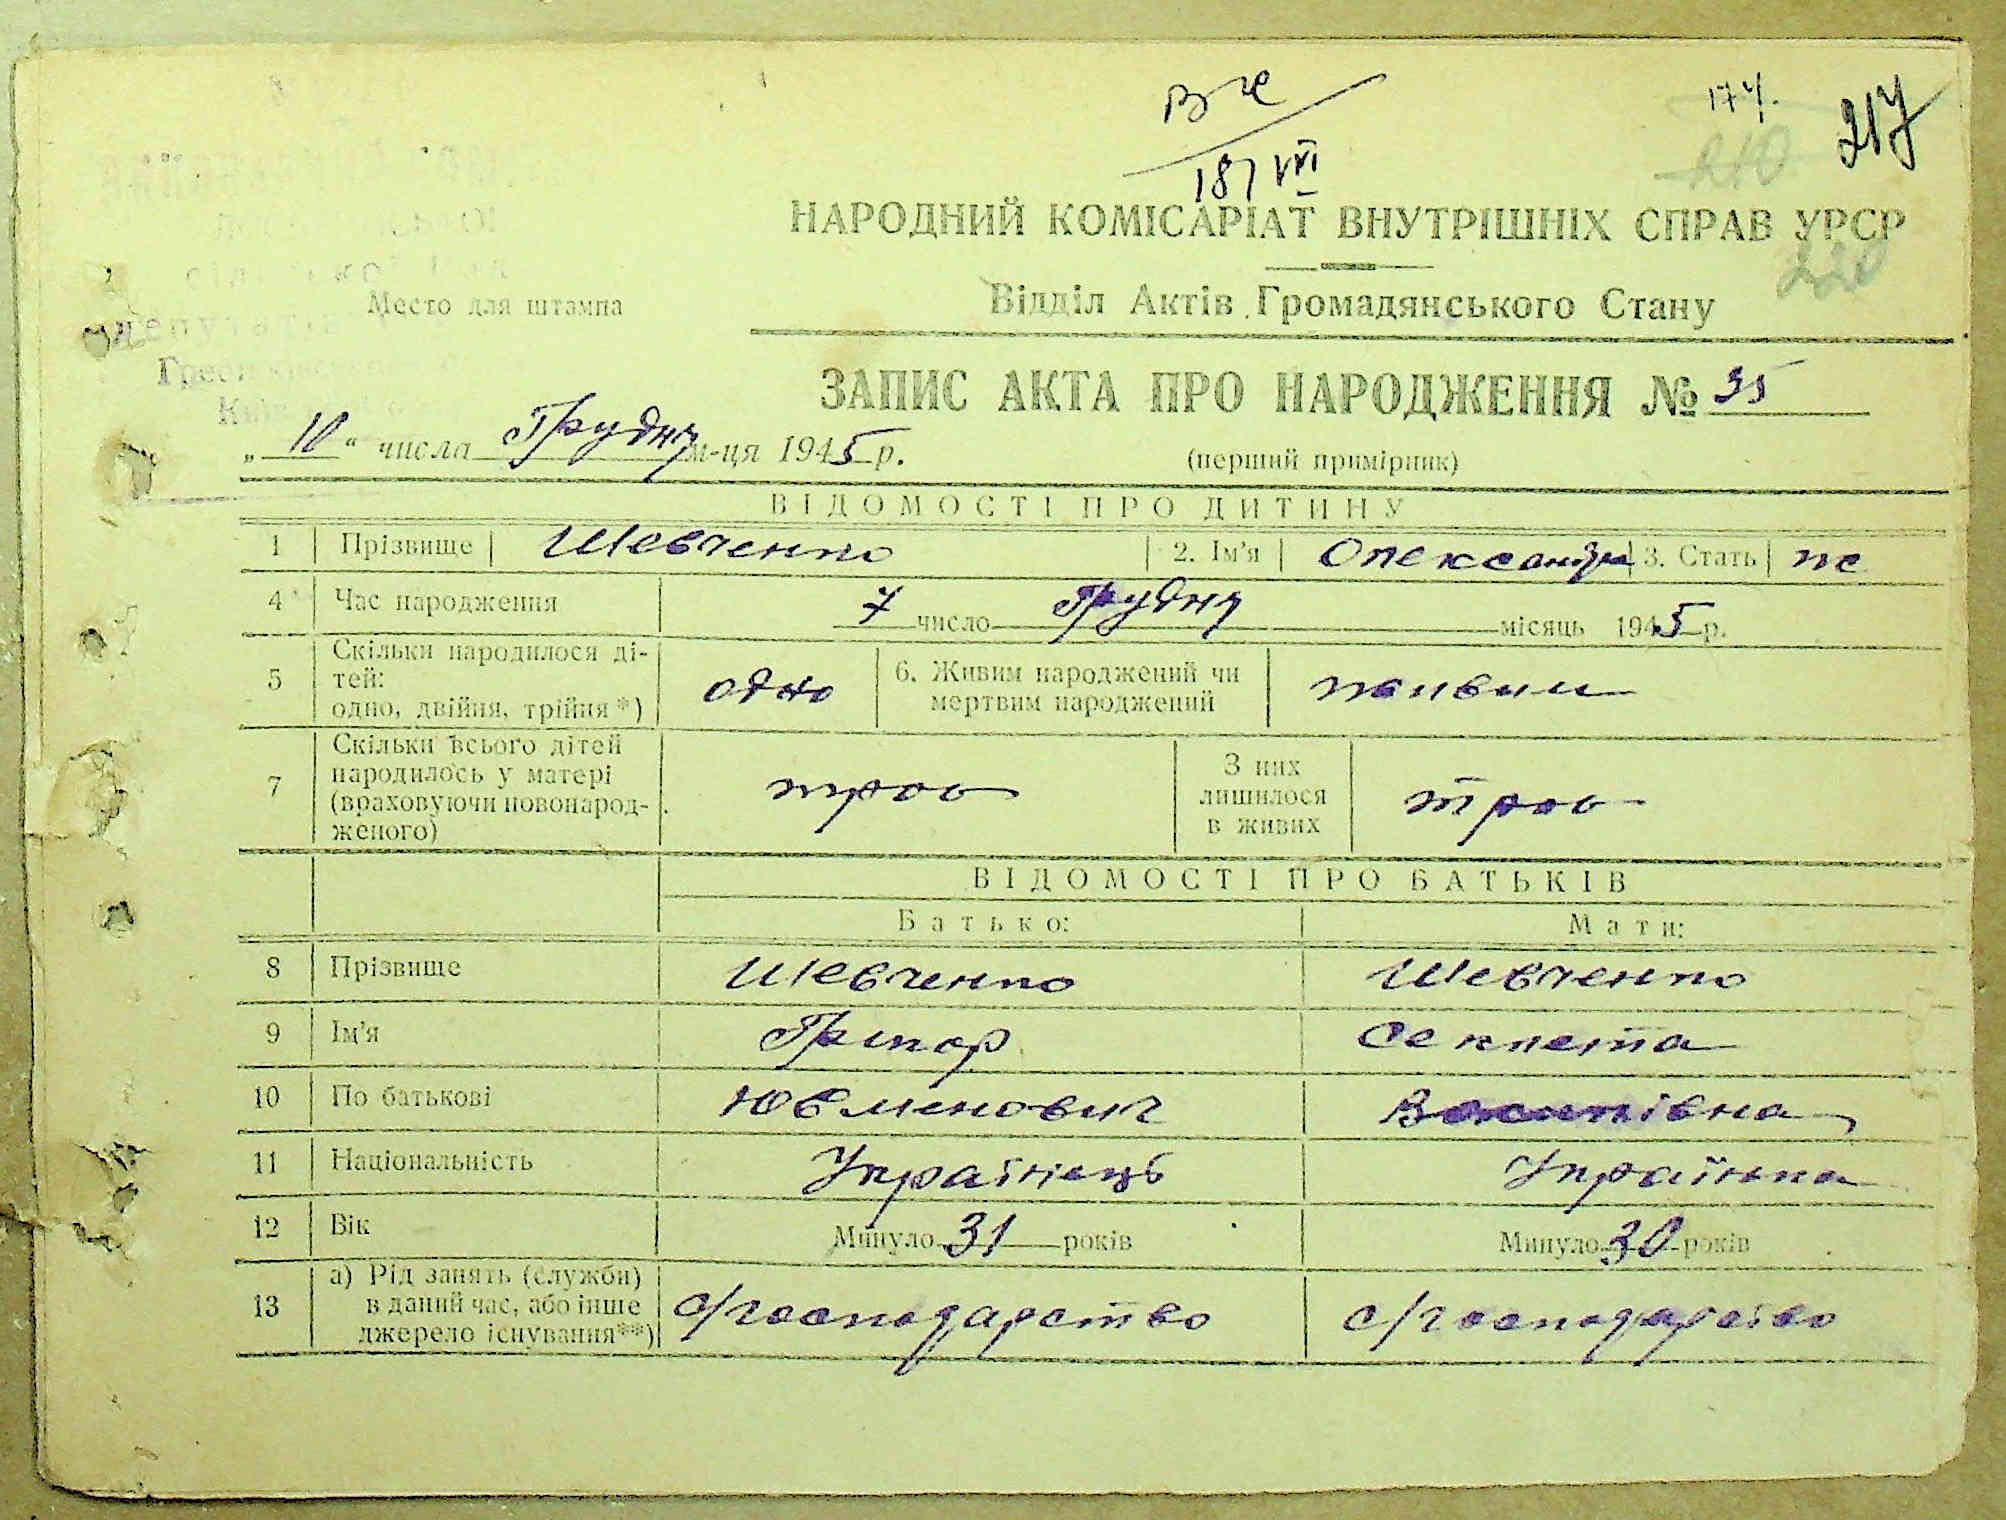 174.
217
210
220
187 VII
НАРОДНИЙ КОМІСАРІАТ ВНУТРІШНІХ СПРАВ УРСР
Відділ Актів Громадянського Стану
Место для штампа
ЗАПИС АКТА ПРО НАРОДЖЕННЯ № 35
„10“ числа Грудня м-ця 1945 р.
(перший примірник)
ВІДОМОСТІ ПРО ДИТИНУ
1 Прізвище Шевченко 2. Ім'я Олександра 3. Стать ж
4 Час народження 7 число Грудня місяць 1945 р.
5 Скільки народилося ді-
тей:
одно, двійня, трійня*) одно 6. Живим народжений чи
мертвим народжений живим
7 Скільки всього дітей
народилось у матері
(враховуючи новонарод-
женого) троє З них
лишилося
в живих троє
ВІДОМОСТІ ПРО БАТЬКІВ
Батько: Мати:
8 Прізвище Шевченко Шевченко
9 Ім'я Григор Секлета
10 По батькові Юхименович Василівна
11 Національність Українець Українка
12 Вік Минуло 31 років Минуло 30 років
13 а) Рід занять (служби)
в даний час, або інше
джерело існування**) с/господарство с/господарство